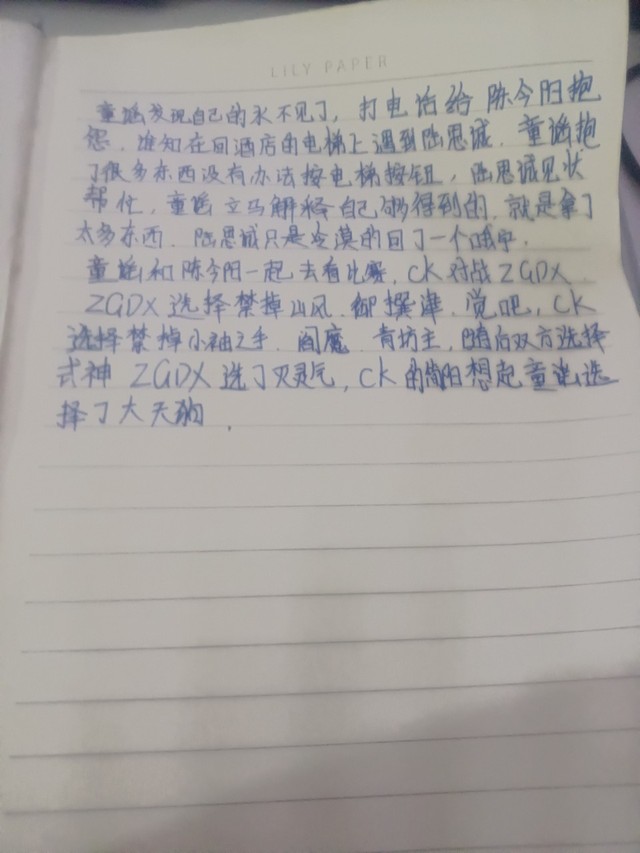 LILY PAPER
童谣发现自己的水不见了，打电话给陈今阳抱
怨，谁知在回酒店的电梯上遇到陆思诚，童谣抱
了很多东西没有办法按电梯按钮，陆思诚见状
帮忙，童谣立马解释自己够得到的，就是拿了
太多东西，陆思诚只是冷漠的回了一个哦字
童谣和陈今阳一起去看比赛，CK对战ZGDX
ZGDX选择禁掉山风、御撰津、觉吧，CK
选择禁掉小袖之手、阎魔、青坊主，随后双方选择
式神 ZGDX选了灭灵气，CK的简阳想起童谣选
择了大天狗，